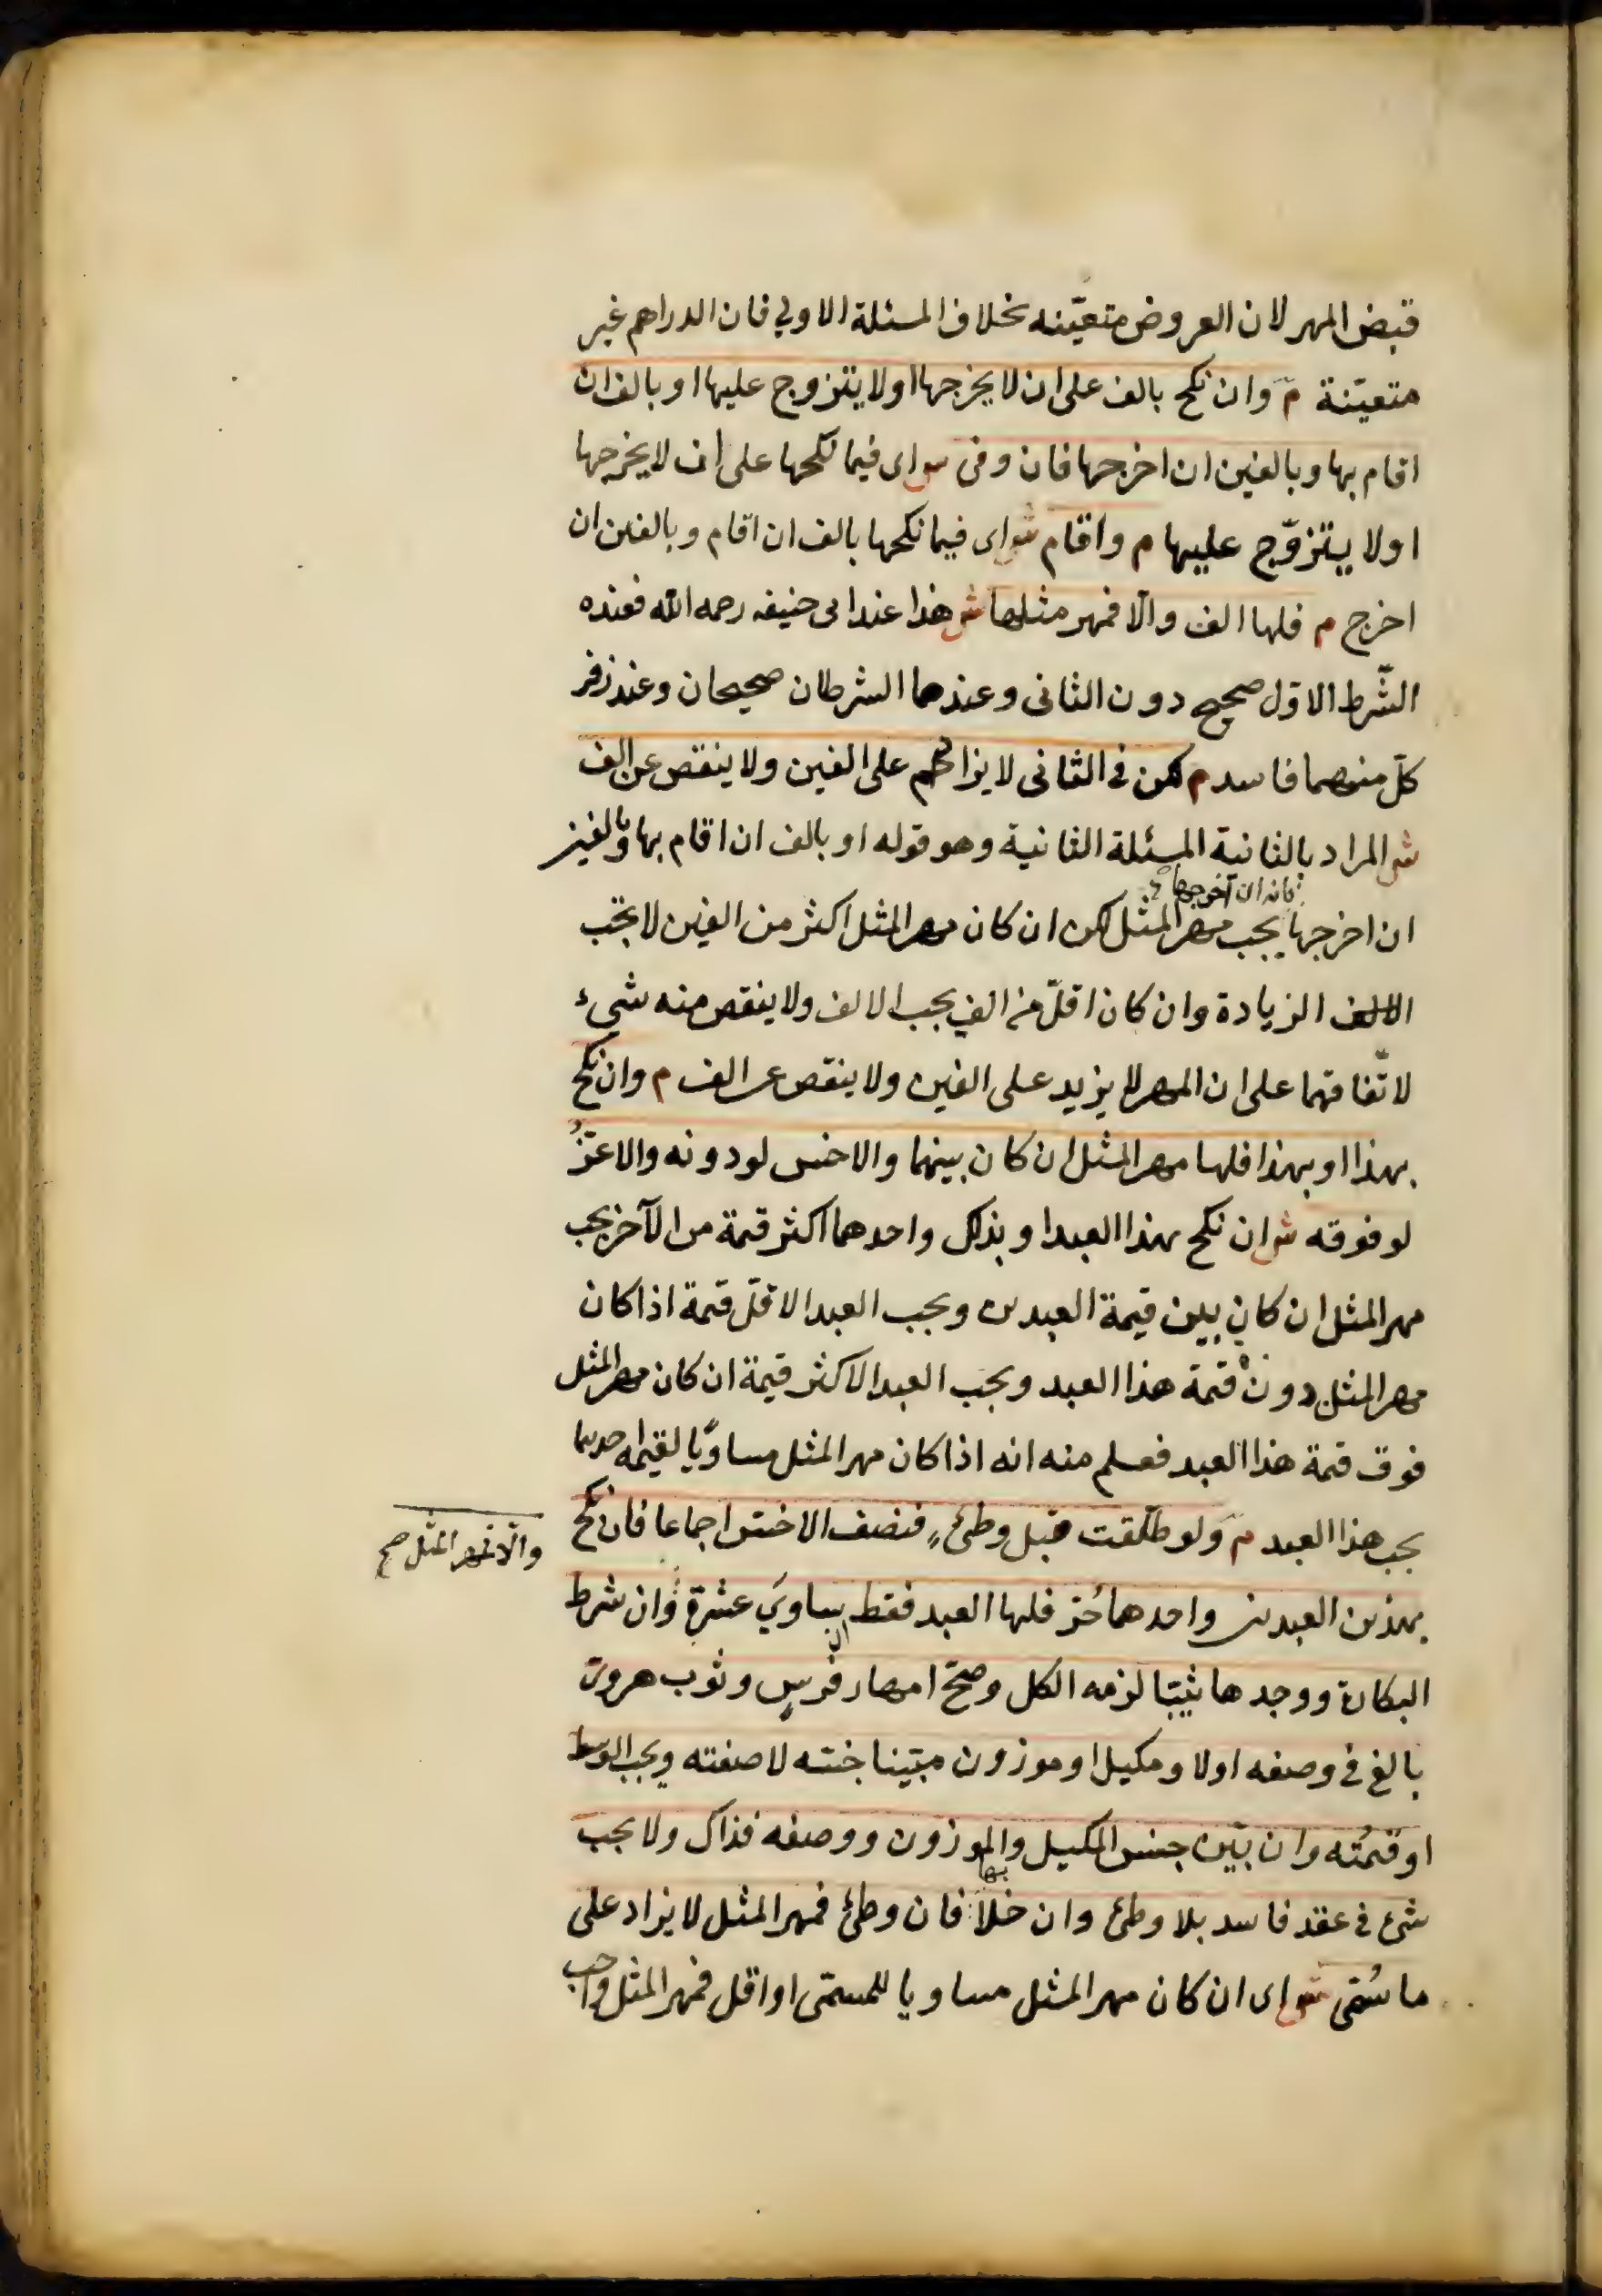 قبض المهر لان العروض متعيّنه بخلاف المسئلة الاولى فان الدراهم غير
متعيّنة م وان نكح بالف على ان لا يخرجها او لا يتزوج عليها او بالف ان
اقام بها وبالفين ان اخرجها فان وفى ش اى فيما نكحها على ان لا يخرجها
او لا يتزوّج عليها م واقام ش اى فيما نكحها بالف ان اقام وبالفين ان
اخرج م فلها الف والّا فمهر مثلها ش هذا عند ابى حنيفه رحمه الله فعنده
الشّرط الاوّل صحيح دون الثانى وعندهما الشرطان صحيحان وعند زفر
كلّ منهما فاسد م لكن فى الثانى لا يزاد على الفين ولا ينقص عن الف
ش المراد بالثانية المسئلة الثانية وهو قوله او بالف ان اقام بها وبالفين
فانه ان اخرجها
ان اخرجها يجب مهر المثل لكن ان كان مهر المثل اكثر من الفين لا تجب
الزيادة وان كان اقلّ من الف يجب الالف ولا ينقص منه شىء
لاتّفاقهما على ان المهر لا يزيد على الفين ولا ينقص عن الف م وان نكح
بهذا او بهذا فلها مهر المثل ان كان بينهما والاخس لو دونه والاعزّ
لو فوقه ش ان نكح بهذا العبد او بذلك واحدهما اكثر قيمة من الآخر يجب
مهر المثل ان كان بين قيمة العبدين ويجب العبد الاقلّ قيمة اذا كان
مهر المثل دون قيمة هذا العبد ويجب العبد الاكثر قيمة ان كان مهر المثل
فوق قيمة هذا العبد فعلم منه انه اذا كان مهر المثل مساويا لقيمة احدهما
يجب هذا العبد م ولو طلّقت قبل وطئٍ فنصف الاخسّ اجماعا فان نكح
والّا فمهر المثل صح
بهذين العبدين واحدهما حُرّ فلها العبد فقط ان يساوي عشرة وان شرط
البكارة ووجدها ثيّبا لزمه الكل وصحّ امهار فرسٍ وثوب هروىّ
بالغ فى وصفه اولا ومكيل او موزون مبيّنا جنسه لا صفته ويجب الوسط
او قيمته وان بيّن جنس المكيل والموزون ووصفه فذاك ولا يجب
شئ فى عقد فاسد بلا وطئ وان خلا بها فان وطئ فمهر المثل لا يزاد على
ما سُمّى ش اى ان كان مهر المثل مساويا للمسمّى او اقل فمهر المثل واجب